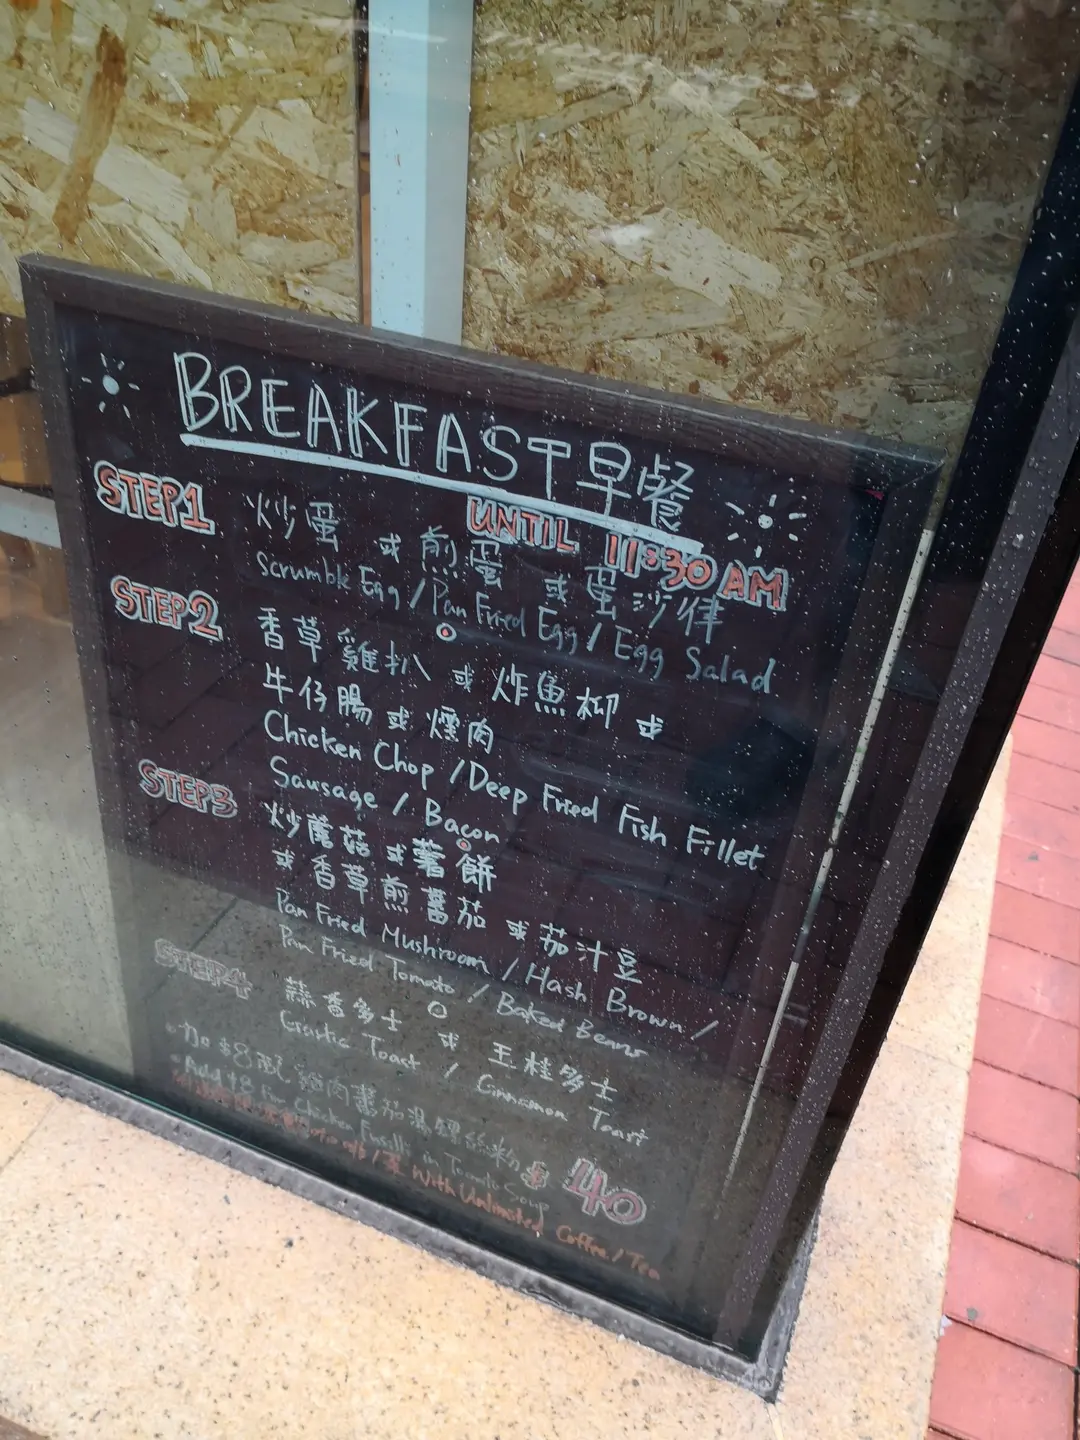 BREAKFAST早餐
UNTIL 11:30 AM
STEP1
炒蛋 或 煎蛋 或 蛋沙律
Scrumble Egg / Pan Fried Egg / Egg Salad
STEP2
香草雞扒 或 炸魚柳 或
牛仔腸 或 燻肉
Chicken Chop / Deep Fried Fish Fillet
Sausage / Bacon
STEP3
炒蘑菇 或 薯餅
或 香草煎蕃茄 或 茄汁豆
Pan Fried Mushroom / Hash Brown /
Pan Fried Tomato / Baked Beans
STEP4
蒜香多士 或 玉桂多士
Garlic Toast / Cinnamon Toast
加$8配 雞肉蕃茄湯螺絲粉
Add $8 For Chicken Fusilli in Tomato Soup
$40
With Unlimited Coffee / Tea